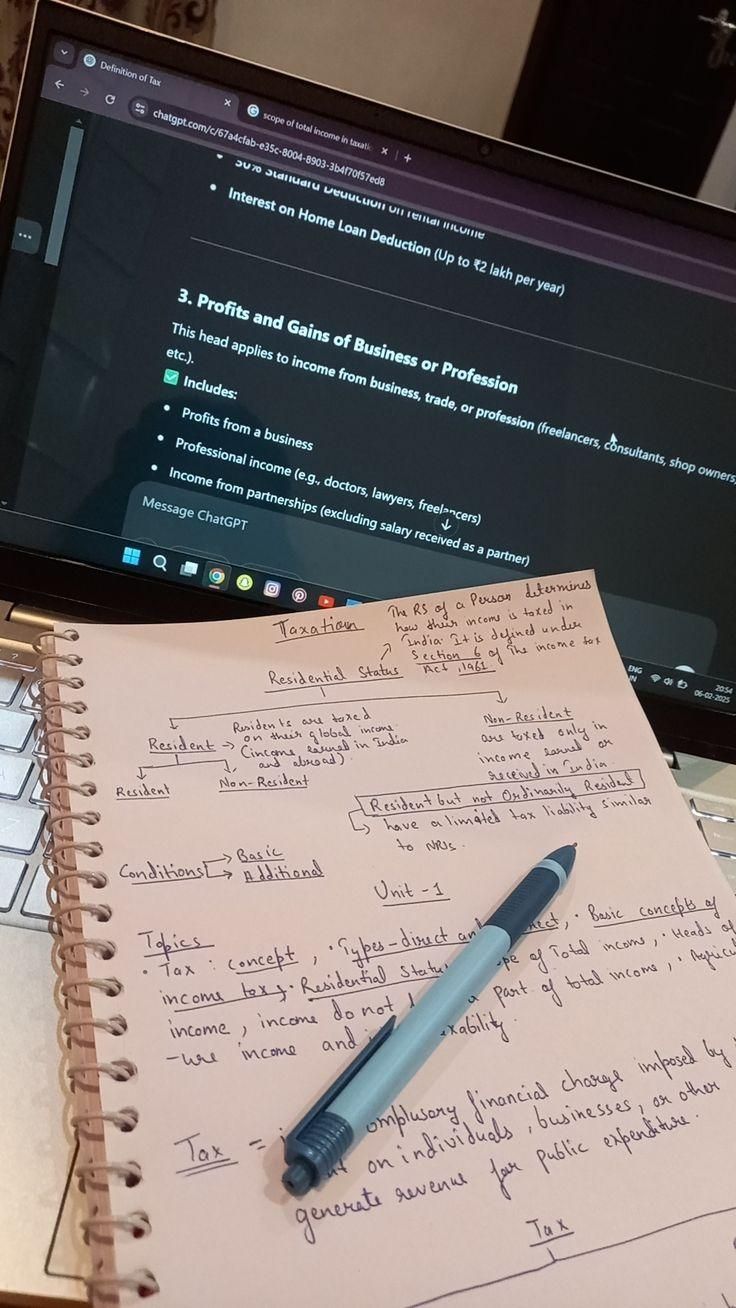 Definition of Tax
scope of total income in taxatic
chatgpt.com/c/67a4cfab-e35c-8004-8903-3b4f70f57ed8
30% Standard Deduction on rental income
• Interest on Home Loan Deduction (Up to ₹2 lakh per year)
3. Profits and Gains of Business or Profession
This head applies to income from business, trade, or profession (freelancers, consultants, shop owners,
etc.).
✅ Includes:
• Profits from a business
• Professional income (e.g., doctors, lawyers, freelancers)
• Income from partnerships (excluding salary received as a partner)
Message ChatGPT
ENG
IN
20:54
06-02-2025
Taxation
The RS of a Person determines
how their income is taxed in
India. It is defined under
Section 6 of The income tax
Act, 1961
Residential Status
Resident → Residents are taxed
on their global income
(income earned in India
and abroad).
Non-Resident
are taxed only in
income earned or
received in India.
Resident
Non-Resident
Resident but not Ordinarily Resident
↳ have a limited tax liability similar
to NRIs.
Conditions → Basic
→ Additional
Unit - 1
Topics
• Tax : concept, • Types - direct and, • Basic concepts of
income tax, • Residential Status of Total income, • Heads of
income, income do not part of total income, • Agricul
-ure income and
Tax = complusory financial charge imposed by
on individuals, businesses, or other
generate revenue for public expenditure.
Tax